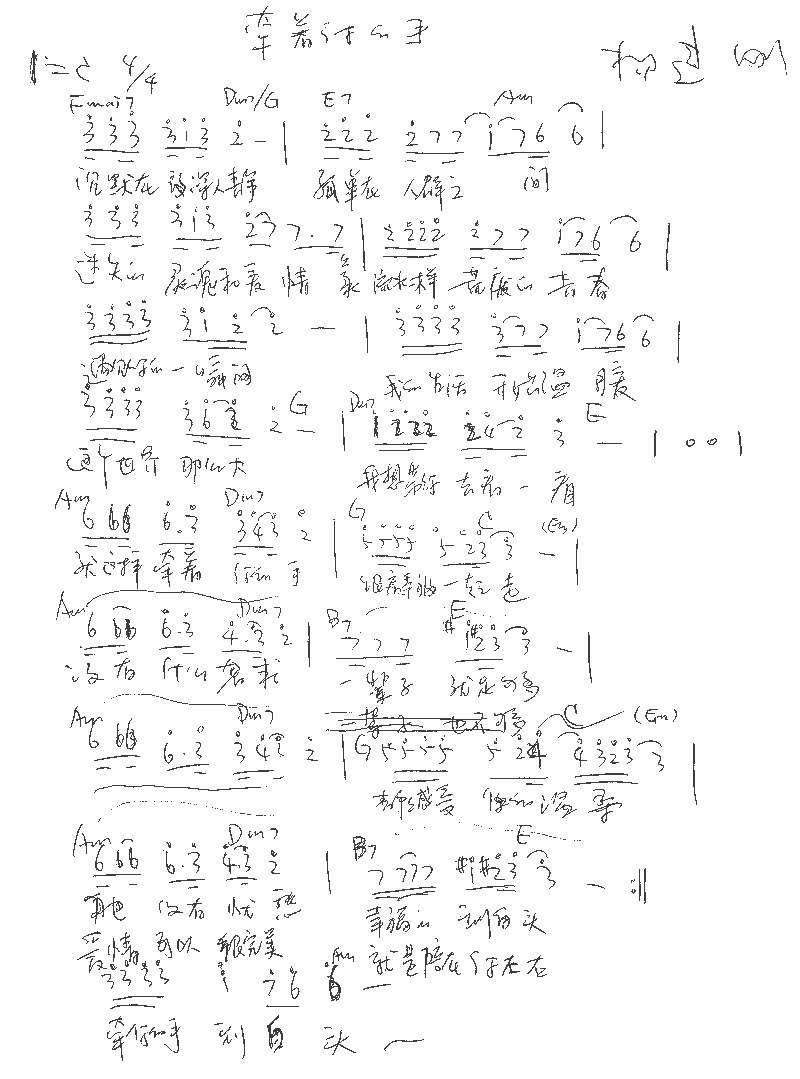 牵着你的手
1=C 4/4
Fmaj7 Dm7/G E7 Am
3 3 3 3 1 3 2 - | 2 2 2 2 7 7 1 7 6 6 |
沉默在 夜深人静 孤单在 人群之 间
3 3 3 3 1 3 2 7 7 . 7 | 2 2 2 2 2 7 7 1 7 6 6 |
迷失的 灵魂和爱 情 流水样 荒废的 青春
3 3 3 3 3 1 2 2 - | 3 3 3 3 3 7 7 1 7 6 6 |
遇见你的一瞬间 我的生活 开始温 暖
G Dm7 E
3 3 3 3 3 6 2 2 - | 2 4 2 3 - | 0 0 |
这个世界 那么大 我想带你 去看一看
Am Dm7 G C (Em)
6 6 6 6 . 3 3 4 3 2 | 5 5 5 5 5 2 3 3 - |
就这样 牵着 你的手 一起走
Am Dm7 B7 E
6 6 6 6 . 3 4 . 3 2 | 7 7 7 #1 2 3 3 - |
没有 什么 苛求 一辈子 就足够
Am Dm7 G C (Em)
6 6 6 6 . 3 3 4 3 2 | 5 5 5 5 5 2 4 4 3 2 3 3 |
感受 你的温柔
Am Dm7 B7 E
6 6 6 6 . 3 4 . 3 2 | 7 7 7 7 #1 #2 3 3 - :||
再也 没有 忧愁 幸福的 到白头
爱情 可以 很完美 就是陪在你左右
Am
3 3 3 3 1 7 6 6 -
牵你的手 到 白 头